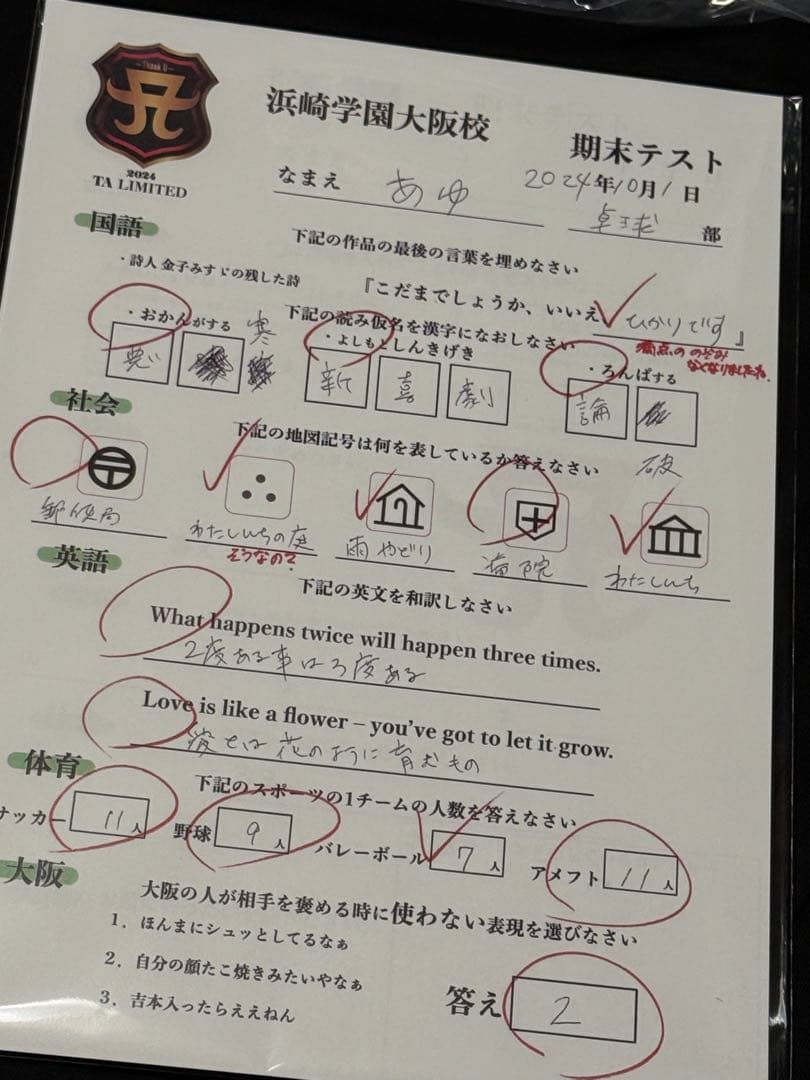 Thank U
2024
TA LIMITED
浜崎学園大阪校
期末テスト
なまえ あゆ
2024年10月1日
卓球部
国語
下記の作品の最後の言葉を埋めなさい
・詩人 金子みすゞの残した詩
『こだまでしょうか、いいえ ひかりです』
満点の のぞみ
なくなりましたね
下記の読み仮名を漢字になおしなさい
・おかんがする
悪 寒
・よしもとしんきげき
新 喜 劇
・ろんぱする
論 破
社会
下記の地図記号は何を表しているか答えなさい
郵便局
わたしんちの庭
そうなの?
雨やどり
病院
わたしんち
英語
下記の英文を和訳しなさい
What happens twice will happen three times.
2度ある事は3度ある
Love is like a flower – you've got to let it grow.
愛とは花のように育むもの
体育
下記のスポーツの1チームの人数を答えなさい
サッカー 11人
野球 9人
バレーボール 7人
アメフト 11人
大阪
大阪の人が相手を褒める時に使わない表現を選びなさい
1. ほんまにシュッとしてるなぁ
2. 自分の顔たこ焼きみたいやなぁ
3. 吉本入ったらええねん
答え 2